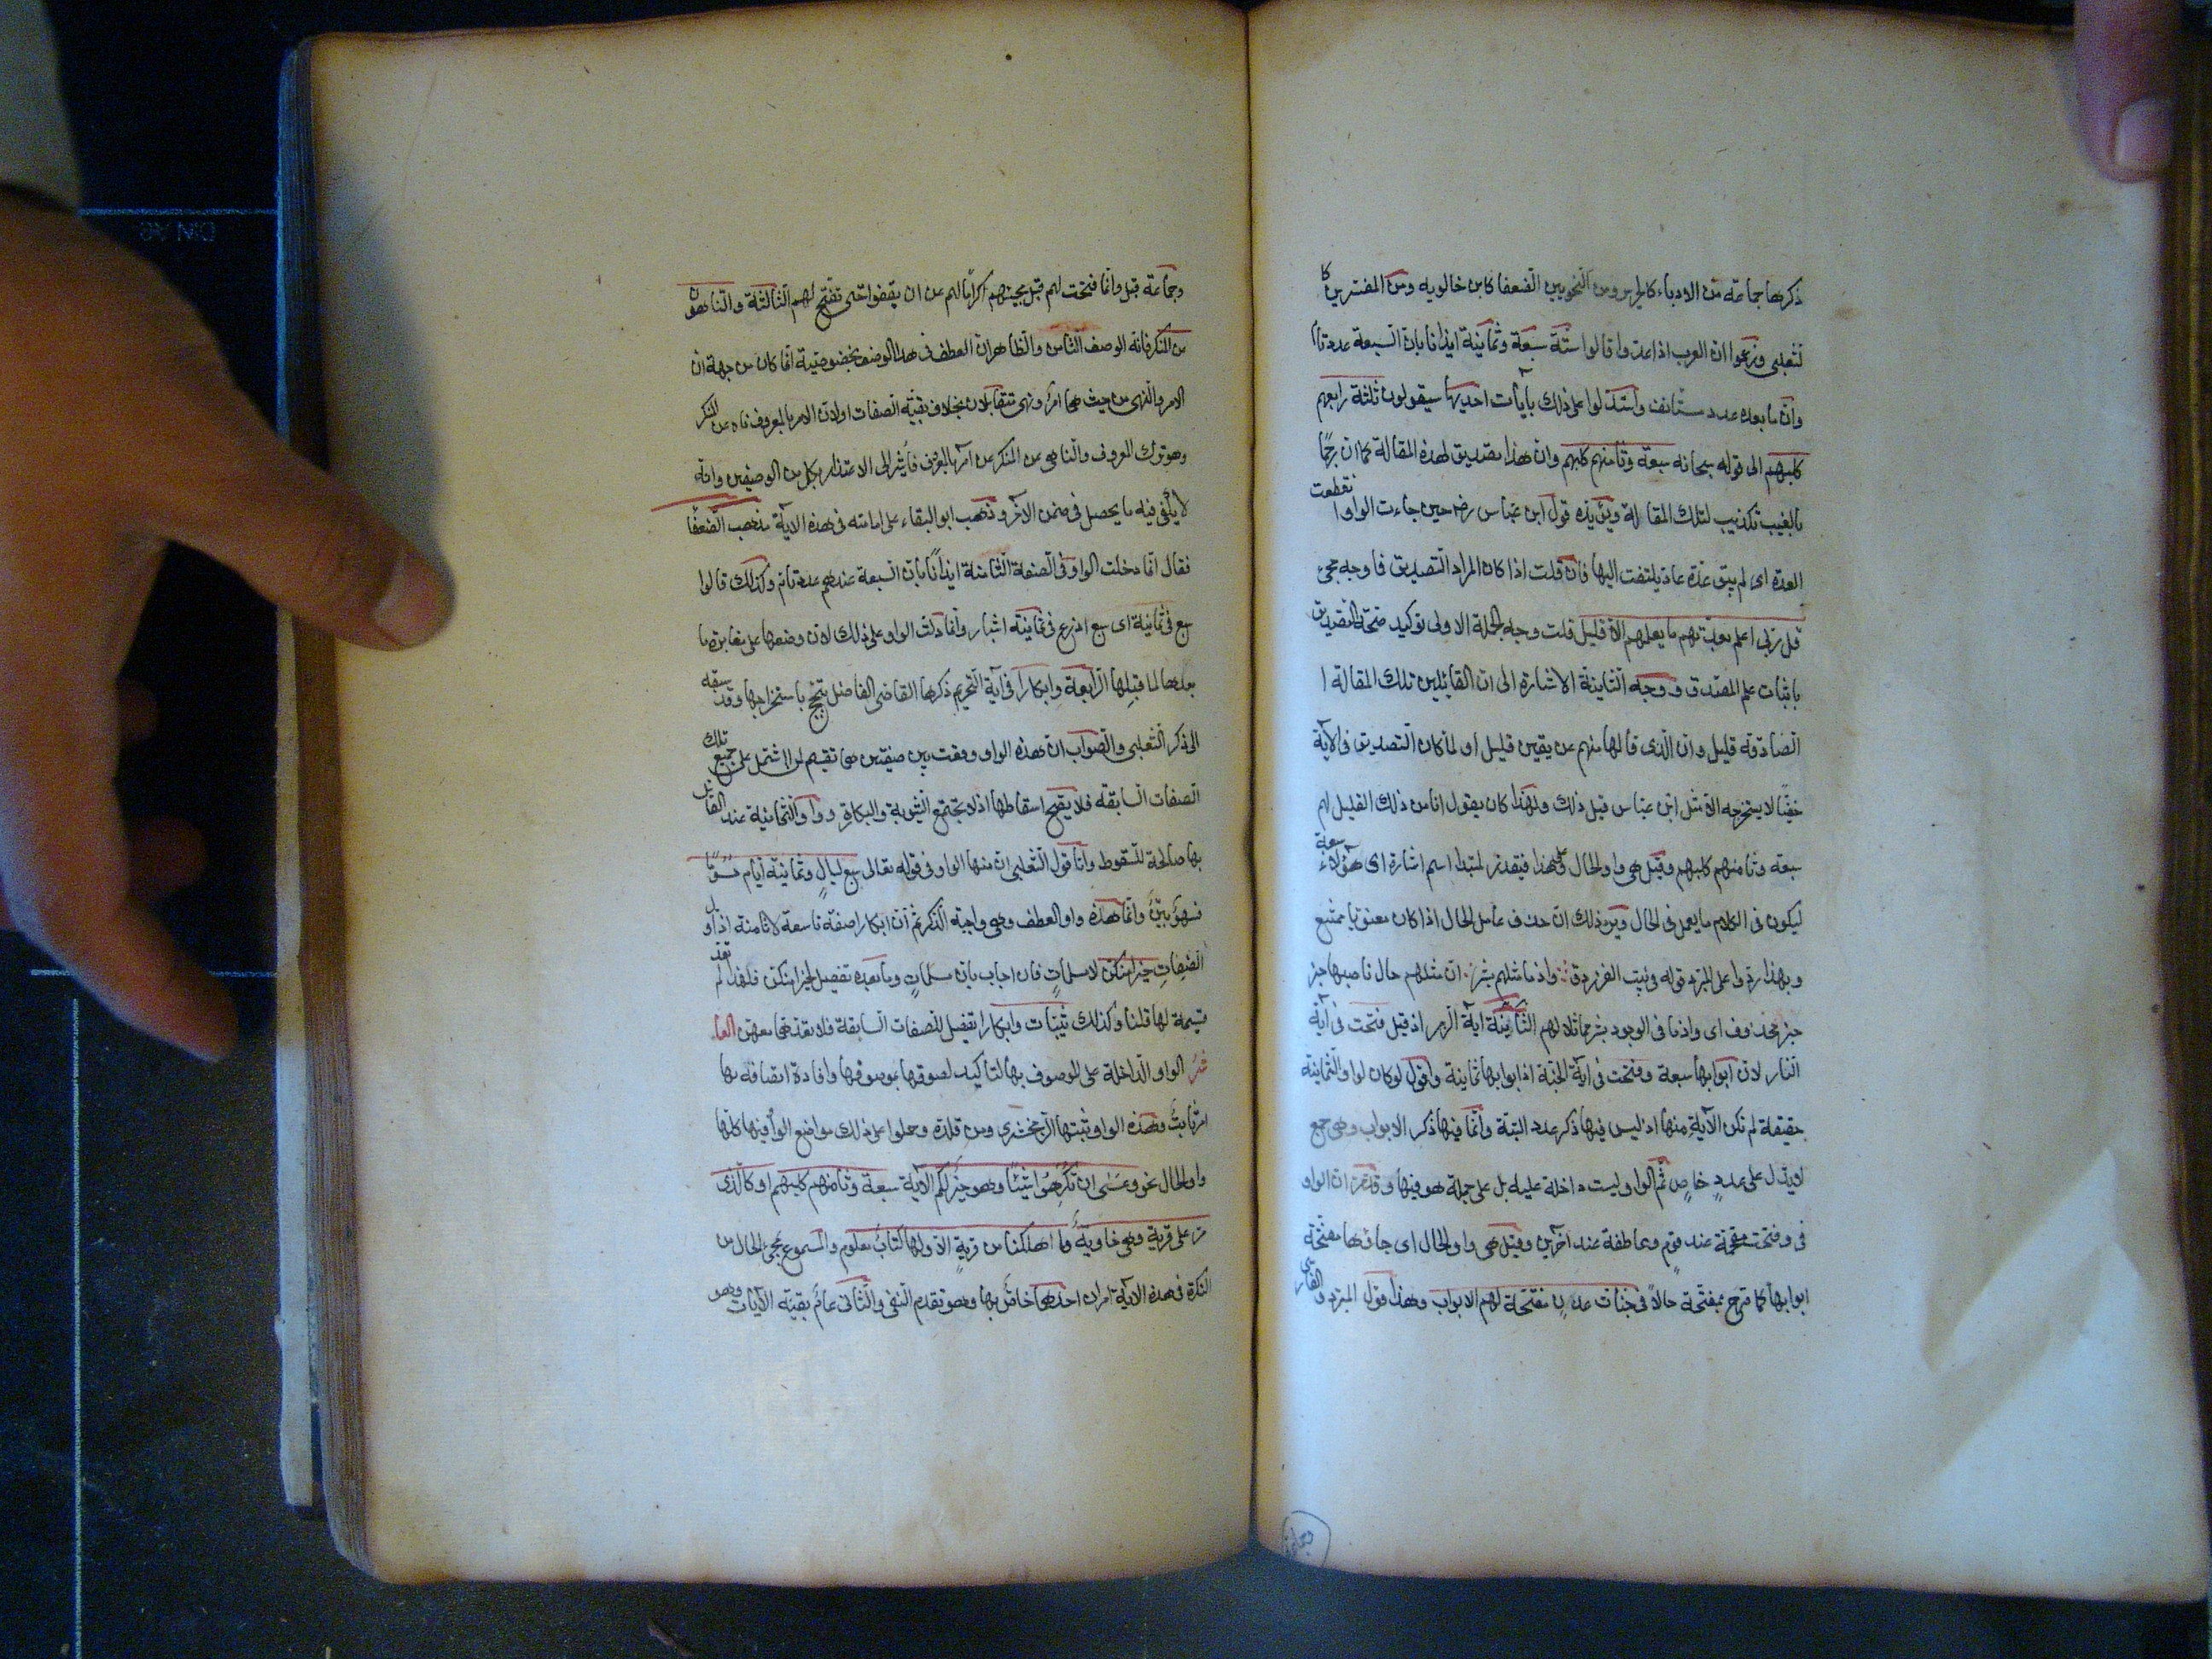 ذكرها جماعة من الادباء كالحريري ومن النحويين الضعفا كابن خالويه ومن المفسرين كا
لثعلبى وزعموا ان العرب اذا عدوا قالوا ستة سبعة وثمانية ايذانا بان السبعة عدد تام
وان ما بعده عدد مستانف واستدلوا على ذلك بآيات احديها سيقولون ثلثة رابعهم
كلبهم الى قوله سبحانه سبعة وثامنهم كلبهم وان هذا تصديق لهذه المقالة كما ان رجمًا
بالغيب تكذيب لتلك المقالة ويؤيده قول ابن عباس رضـ حين جاءت الواو انقطعت
العدة اى لم يبق عدة عاد يلتفت اليها فان قلت اذا كان المراد التصديق فما وجه مجئ
قل ربى اعلم بعدتهم ما يعلمهم الا قليل قلت وجه الجملة الاولى توكيد صحة التصديق
باثبات علم المصدق ووجه الثانية الاشارة الى ان القائلين تلك المقالة ا
الصادقة قليل وان الذى قالها منهم عن يقين قليل او لما كان التصديق فى الآية
خفيًّا لا يستخرجه الا مثل ابن عباس قيل ذلك ولهذا كان يقول انا من ذلك القليل هم
سبعة وثامنهم كلبهم وقيل هى واو الحال وعلى هذا فيقدر لمبتدا اسم اشارة اى هؤلاء سبعة
ليكون فى الكلام ما يعمل فى الحال ويرد ذلك ان حذف عامل الحال اذا كان معنويا ممتنع
وبهذا ردوا على المبرد قوله فى بيت الفرزدق واذ ما مثلهم بشر ان مثلهم حال ناصبها خبر
خبر محذوف اى واذ ما فى الوجود بشر مماثلا لهم الثانية آية الزمر اذ قيل فتحت فى آية
النار لان ابوابها سبعة وفتحت فى آية الجنة اذ ابوابها ثمانية واقول لو كان لواو الثمانية
حقيقة لم تكن الآية منها اذ ليس فيها ذكر عدد البتة وانما فيها ذكر الابواب وهى جمع
لا يدل على عدد خاص ثم الواو ليست داخلة عليه بل على جملة هو فيها وقد مر ان الواو
فى وفتحت مقحمة عند قوم وعاطفة عند آخرين وقيل هى واو الحال اى جاؤها مفتحة
ابوابها كما صرح بمفتحة حالاً فى جنات عدن مفتحة لهم الابواب وهذا قول المبرد والفارسى
وجماعة قيل وانما فتحت لهم قبل مجيئهم اكراما لهم عن ان يقفوا حتى تفتح لهم الثالثة والناهون
عن المنكر فانه الوصف الثامن والظاهر ان العطف فى هذا الوصف بخصوصيته انما كان من جهة ان
الامر والنهى من حيث هما امر ونهى تتقابلان بخلاف بقية الصفات او لان الامر بالمعروف ناه عن المنكر
وهو ترك المعروف والناهى عن المنكر من آمر بالمعروف فاشير الى الاعتداد بكل من الوصفين وانه
لا يكفى فيه ما يحصل فى ضمن الآخر وذهب ابو البقاء على امامته فى هذه الاية مذهب الضعفا
فقال انما دخلت الواو فى الصفة الثامنة ايذانًا بان السبعة عندهم عدد تام وكذلك قالوا
سبع فى ثمانية اى سبع اذرع فى ثمانية اشبار وانما دلت الواو على ذلك لان وضعها على مغايرة ما
بعدها لما قبلها الرابعة وابكارا فى آية التحريم ذكرها القاضى الفاضل بتبجح باستخراجها وقد سبقه
الى ذكر الثعلبى والصواب ان هذه الواو وقعت بين صفتين هما تقسيم لمن اشتمل على جميع تلك
الصفات السابقة فلا يصح اسقاطها اذ لا تجتمع الثيوبة والبكارة وواو الثمانية عند القائل
بها صالحة للسقوط واما قول الثعلبى ان منها الواو فى قوله تعالى سبع ليال وثمانية ايام حسومًا
فسهو بيّن وانما هذه واو العطف وهى واجبة الذكر ثم ان ابكارا صفة تاسعة لا ثامنة اذ اول
الصفات خيرا منكن لا مسلمات فان اجاب بان مسلمات وما بعده تفصيل لخيرا منكن فلهذا لم تعد
قسيمة لها قلنا وكذلك ثيبات وابكارا تفصيل للصفات السابقة فلا نعدهما معهن العا
شر الواو الداخلة على الموصوف بها لتأكيد لصوقها بموصوفها وافادة اتصافه بها
امر ثابت وهذه الواو ثبتها الزمخشرى ومن قلده وحملوا على ذلك مواضع الواو فيها كلها
واو الحال نحو وعسى ان تكرهوا شيئًا وهو خير لكم الآية سبعة وثامنهم كلبهم او كالذى
مر على قرية وهى خاوية وما اهلكنا من قرية الا ولها كتاب معلوم والمسموع مجئ الحال من
النكرة فى هذه الآية امران احدهما خاص بها وهو تقدم النفى والثانى عام بقية الآيات وهو